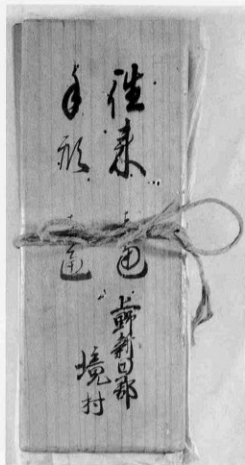 往来 通
手形 通
上野新田郡
境村